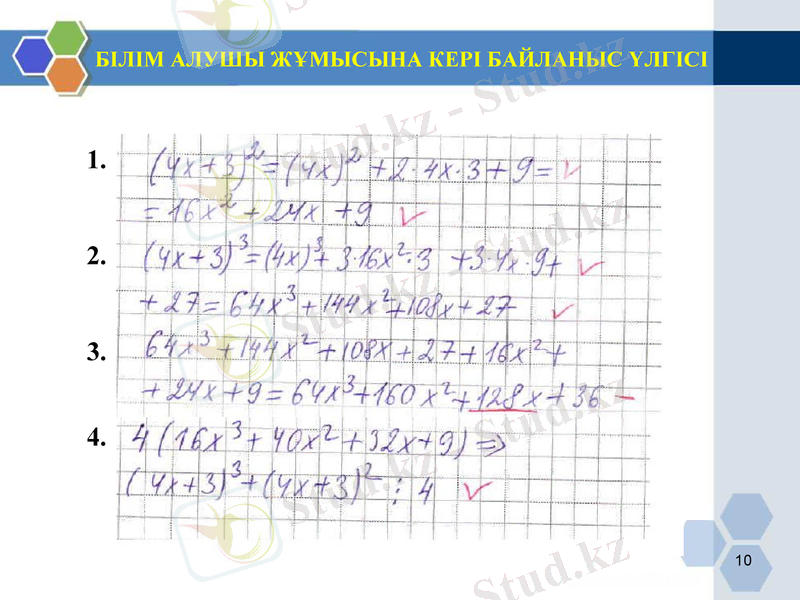 БІЛІМ АЛУШЫ ЖҰМЫСЫНА КЕРІ БАЙЛАНЫС ҮЛГІСІ
1. (4x+3)²=(4x)²+2·4x·3+9=
=16x²+24x+9
2. (4x+3)³=(4x)³+3·16x²·3+3·4x·9+
+27=64x³+144x²+108x+27
3. 64x³+144x²+108x+27+16x²+
+24x+9=64x³+160x²+128x+36
4. 4(16x³+40x²+32x+9)=>
(4x+3)³+(4x+3)²⋮4
10
Stud.kz - Stud.kz
Stud.kz - Stud.kz
Stud.kz - Stud.kz
Stud.kz